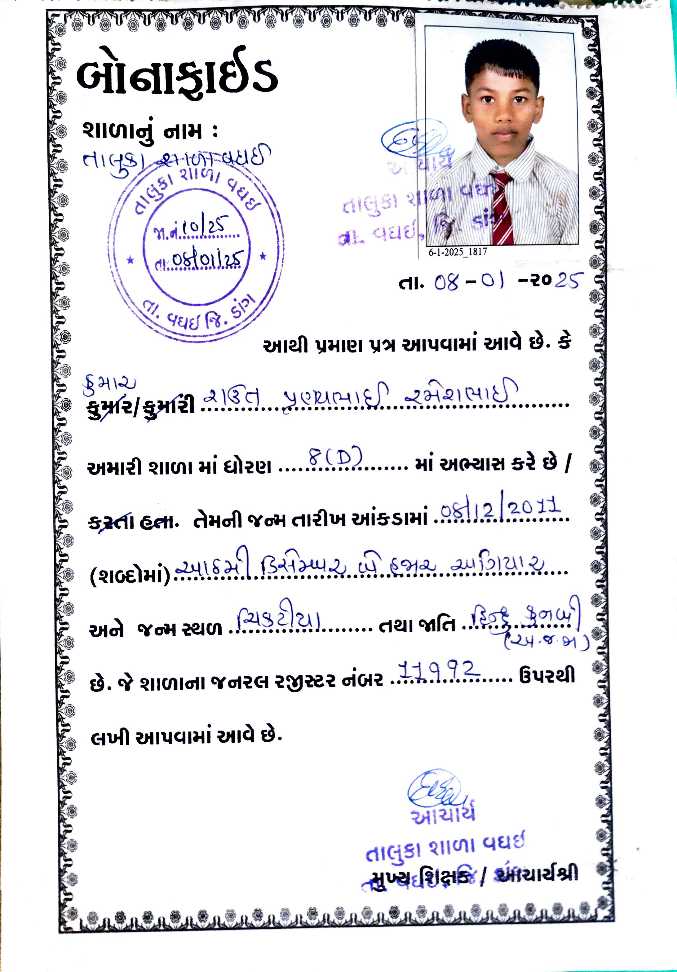 બોનાફાઈડ
શાળાનું નામ :
તાલુકા શાળા વઘઈ
તાલુકા શાળા વઘઈ
જા.નં.૧૦/25
તા.08/01/25
તા. વઘઈ જિ. ડાંગ
આચાર્ય
તાલુકા શાળા વઘઈ
તા. વઘઈ, જિ. ડાંગ
6-1-2025_1817
તા. 08-01-૨૦25
આથી પ્રમાણ પત્ર આપવામાં આવે છે. કે
કુમાર
કુમાર/કુમારી રાઉત પ્રણયભાઈ રમેશભાઈ
અમારી શાળા માં ધોરણ 8(D) માં અભ્યાસ કરે છે /
કરતા હતા. તેમની જન્મ તારીખ આંકડામાં 08/12/2011
(શબ્દોમાં) આઠમી ડિસેમ્બર બે હજાર અગિયાર
અને જન્મ સ્થળ ચિકટીયા તથા જાતિ હિન્દુ કુનબી
(અ.જ.જા)
છે. જે શાળાના જનરલ રજીસ્ટર નંબર 11992 ઉપરથી
લખી આપવામાં આવે છે.
આચાર્ય
તાલુકા શાળા વઘઈ
તા. વઘઈ, જિ. ડાંગ
મુખ્ય શિક્ષક / આચાર્યશ્રી